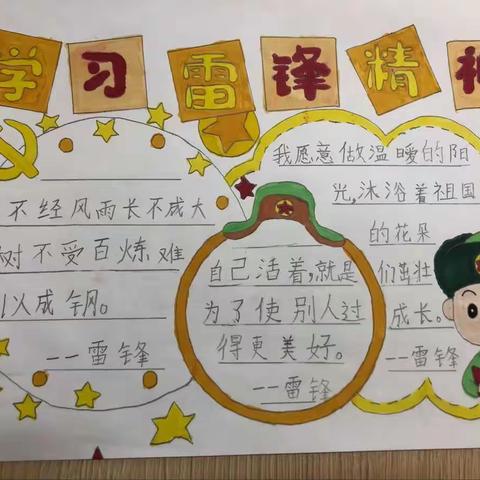 学习雷锋精神
不经风雨长不成大
树不受百炼难
以成钢。
——雷锋
自己活着,就是
为了使别人过
得更美好。
——雷锋
我愿意做温暖的阳
光,沐浴着祖国
的花朵
们茁壮
成长。
——雷锋